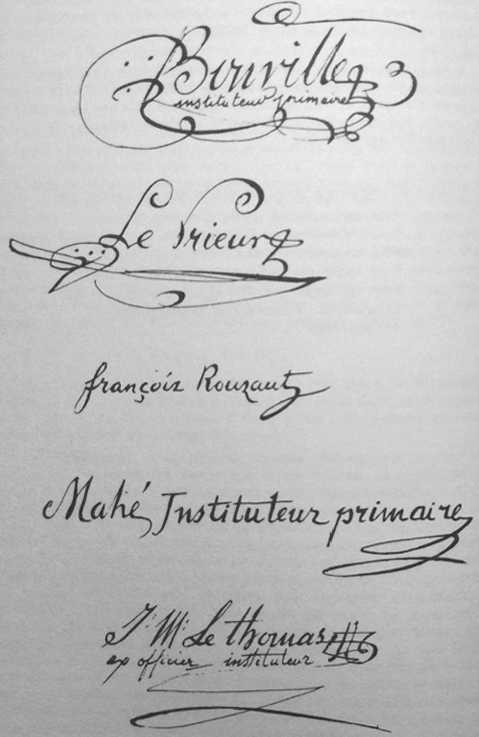 Bouville
instituteur primaire
Le Prieur
françois Rouzaut
Mahé Instituteur primaire
J. M. Le thomas
ex officier instituteur